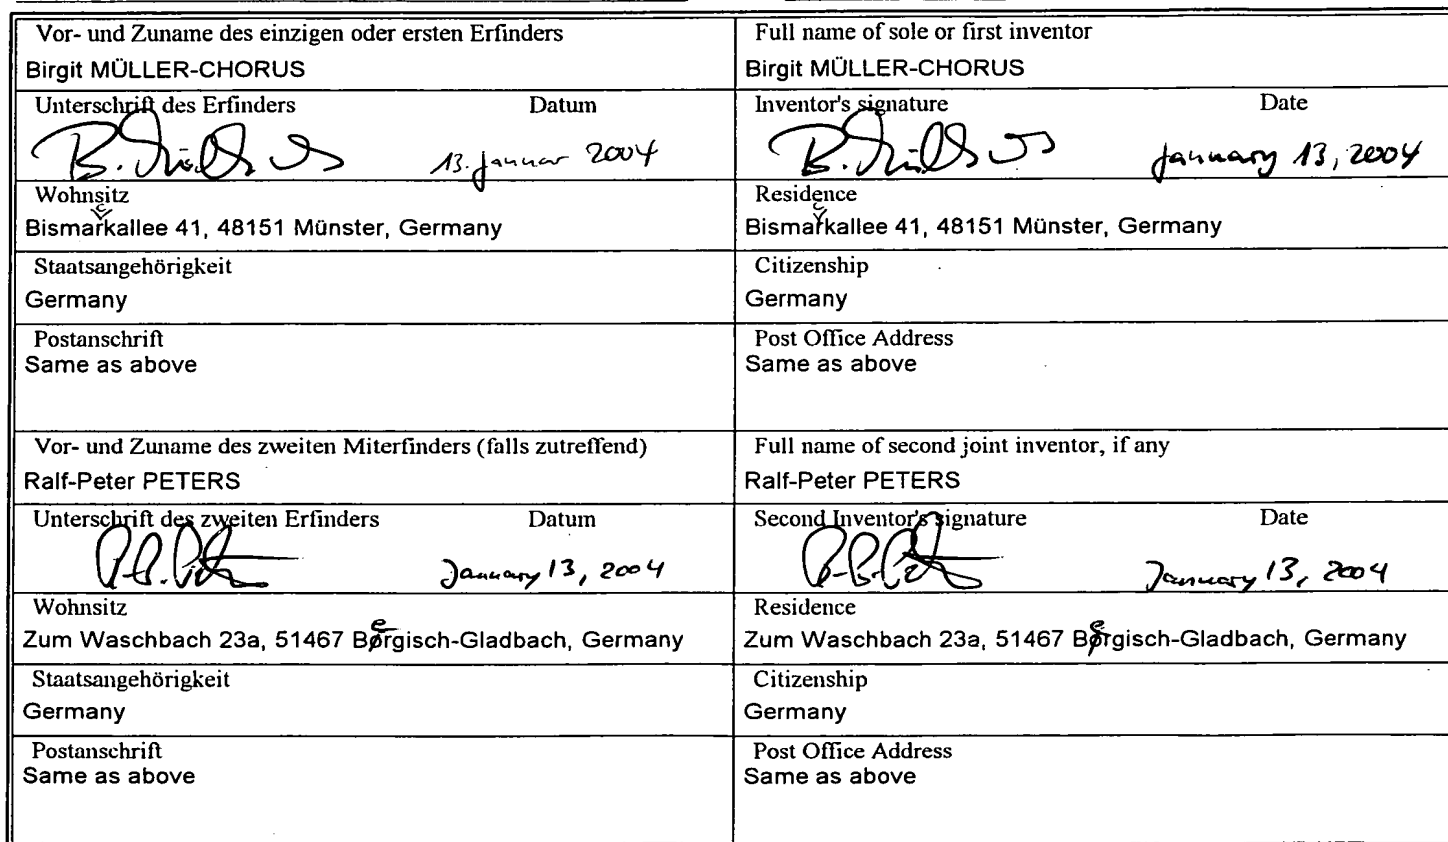 Vor- und Zuname des einzigen oder ersten Erfinders
Birgit MÜLLER-CHORUS
Full name of sole or first inventor
Birgit MÜLLER-CHORUS
Unterschrift des Erfinders Datum
13. Januar 2004
Inventor's signature Date
January 13, 2004
Wohnsitz
Bismarckallee 41, 48151 Münster, Germany
Residence
Bismarckallee 41, 48151 Münster, Germany
Staatsangehörigkeit
Germany
Citizenship
Germany
Postanschrift
Same as above
Post Office Address
Same as above
Vor- und Zuname des zweiten Miterfinders (falls zutreffend)
Ralf-Peter PETERS
Full name of second joint inventor, if any
Ralf-Peter PETERS
Unterschrift des zweiten Erfinders Datum
January 13, 2004
Second Inventor's signature Date
January 13, 2004
Wohnsitz
Zum Waschbach 23a, 51467 Bergisch-Gladbach, Germany
Residence
Zum Waschbach 23a, 51467 Bergisch-Gladbach, Germany
Staatsangehörigkeit
Germany
Citizenship
Germany
Postanschrift
Same as above
Post Office Address
Same as above